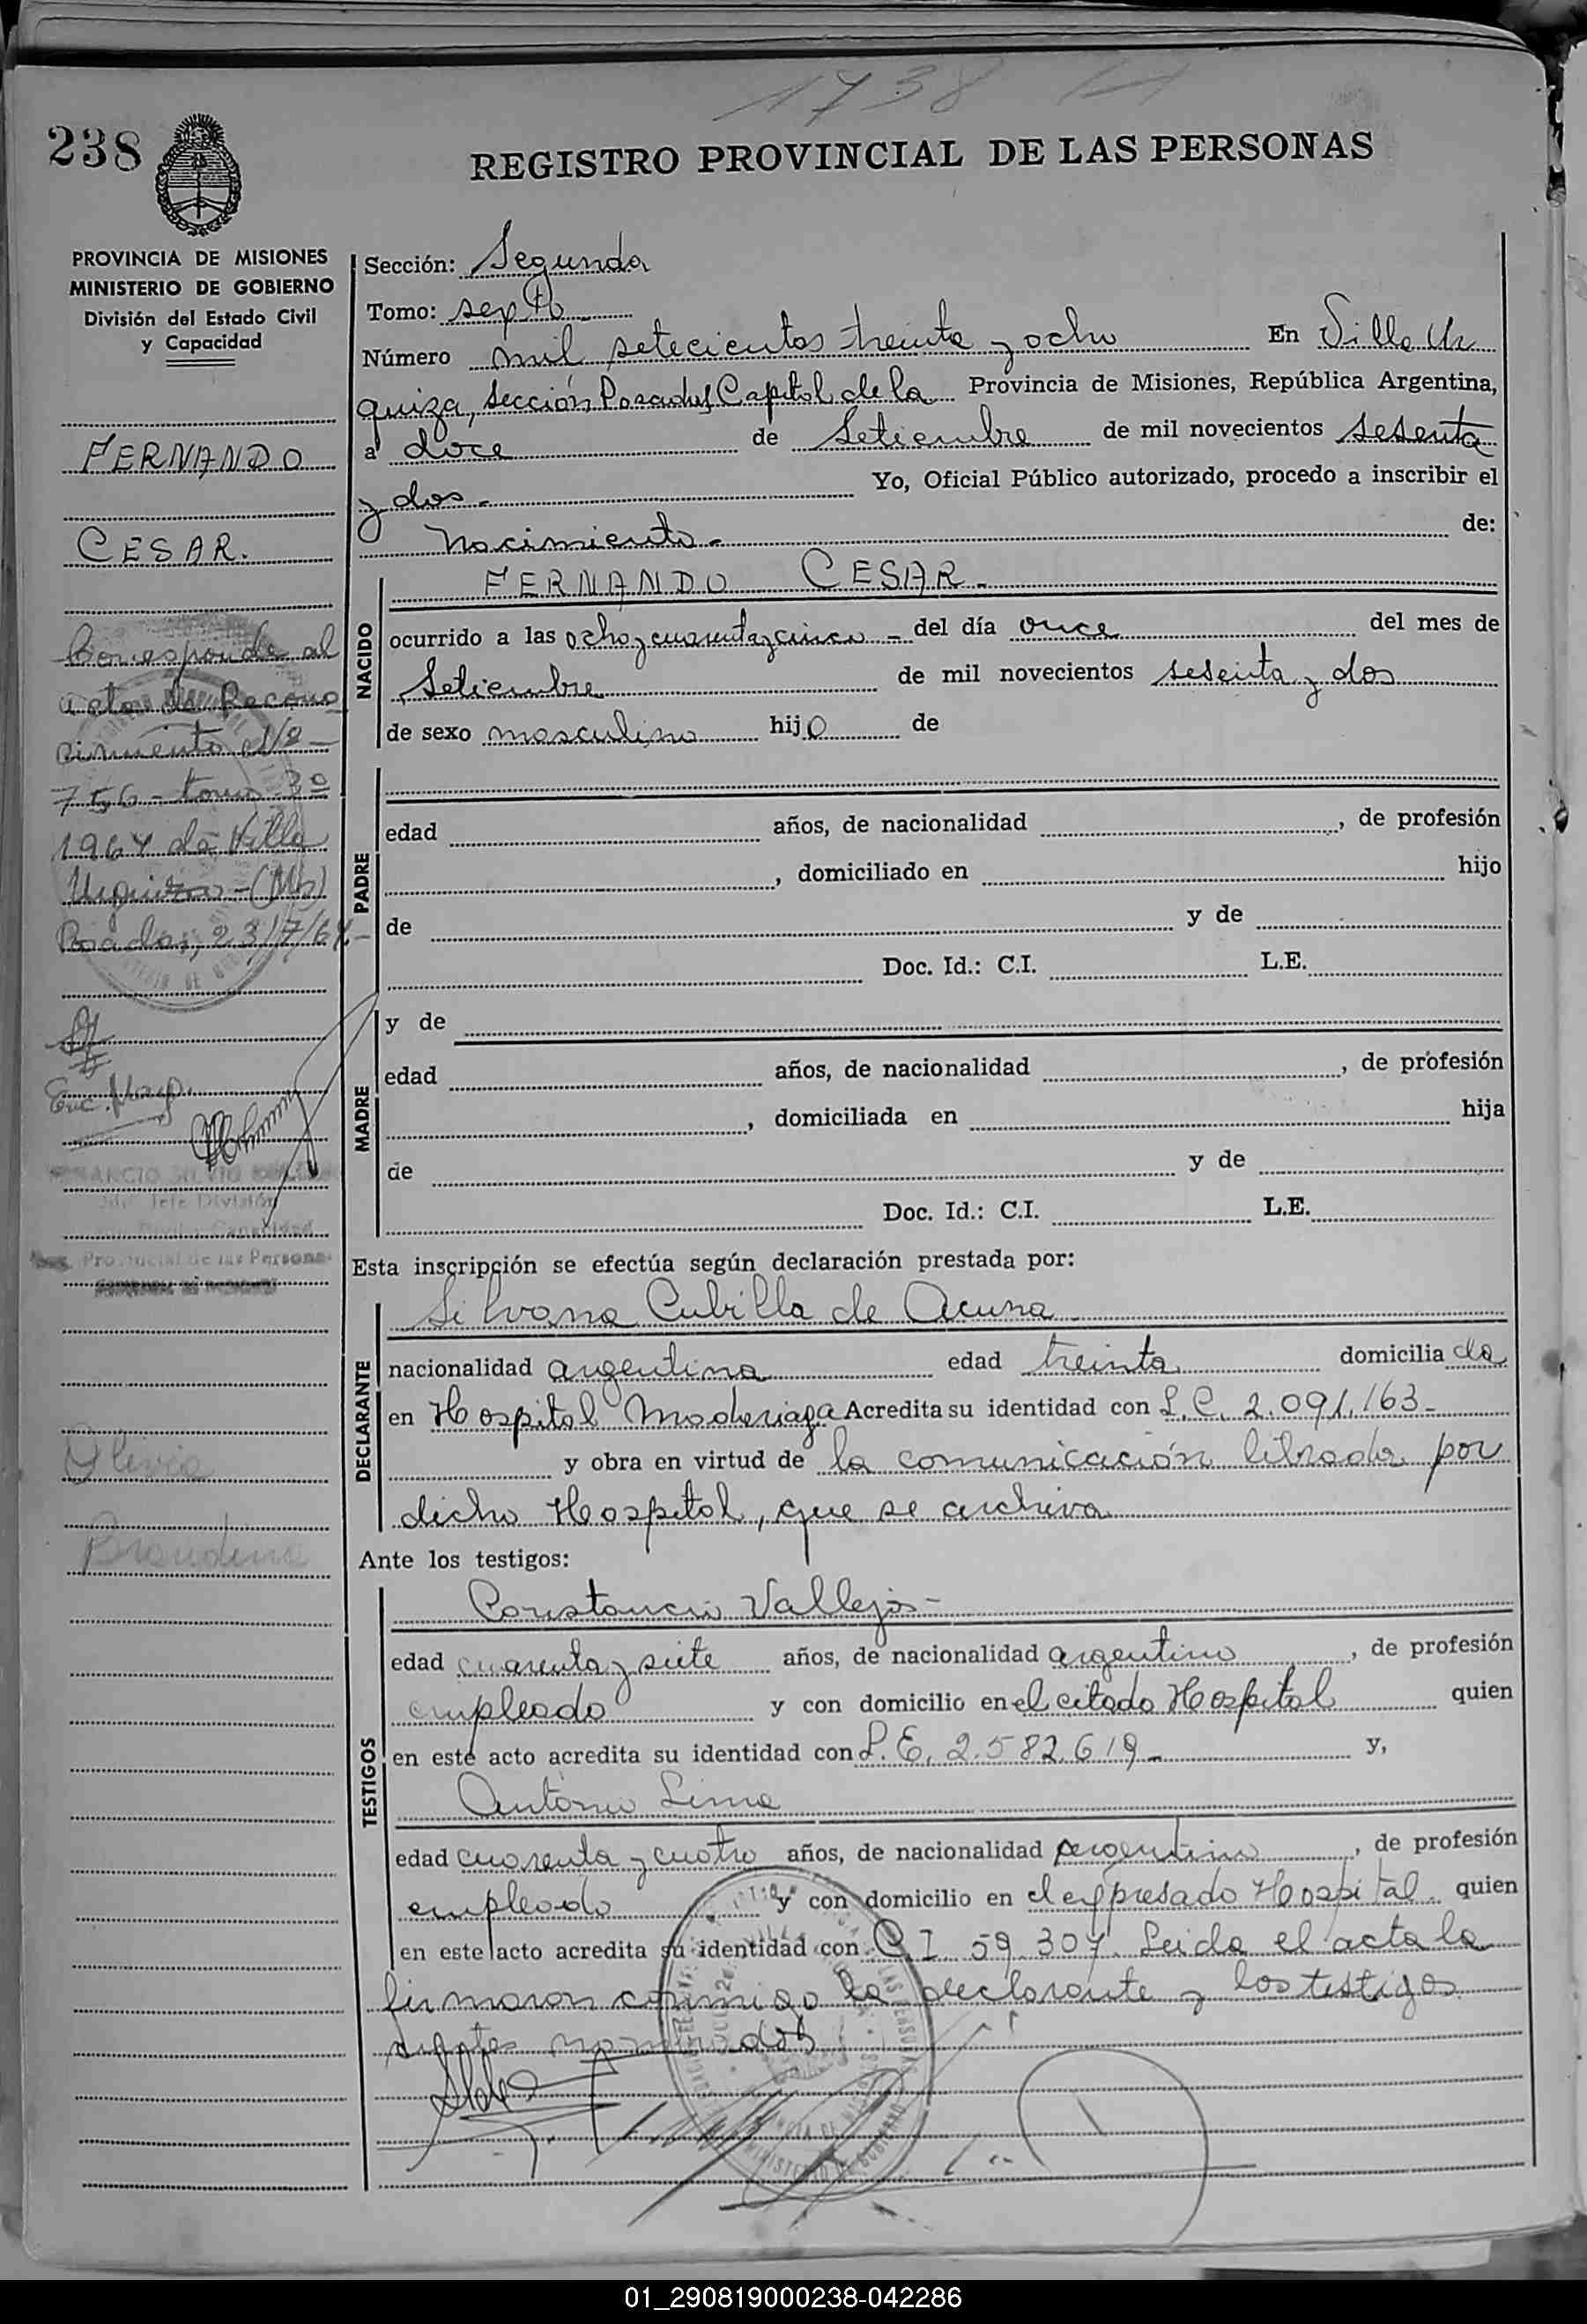 1738
238
REGISTRO PROVINCIAL DE LAS PERSONAS
PROVINCIA DE MISIONES
MINISTERIO DE GOBIERNO
División del Estado Civil
y Capacidad
FERNANDO
CESAR.
Corresponde al
acta de Recono
cimiento Nº
756 - tomo 3º
1964 de Villa
Urquiza - (Mis)
Posadas, 23/7/64.-
Enc.
Jefe División
Provincial de las Personas
Olivia
Sección: Segunda
Tomo: septo
Número mil setecientos treinta y ocho En Villa Ur
quiza, sección Posadas Capital de la Provincia de Misiones, República Argentina,
a doce de Setiembre de mil novecientos sesenta
y dos.- Yo, Oficial Público autorizado, procedo a inscribir el
Nacimiento.- de:
NACIDO
FERNANDO CESAR.-
ocurrido a las ocho y cuarenta y cinco - del día once del mes de
Setiembre de mil novecientos sesenta y dos
de sexo masculino hijo de
PADRE
edad años, de nacionalidad , de profesión
, domiciliado en hijo
de y de
Doc. Id.: C.I. L.E.
MADRE
y de
edad años, de nacionalidad , de profesión
, domiciliada en hija
de y de
Doc. Id.: C.I. L.E.
Esta inscripción se efectúa según declaración prestada por:
DECLARANTE
Silvana Cubilla de Acuna
nacionalidad argentina edad treinta domiciliada
en Hospital Madariaga Acredita su identidad con L.C. 2.091.163-
y obra en virtud de la comunicación librada por
dicho Hospital, que se archiva
Ante los testigos:
TESTIGOS
Constancio Vallejos-
edad cuarenta y siete años, de nacionalidad argentino , de profesión
empleado y con domicilio en el citado Hospital quien
en este acto acredita su identidad con L.E. 2.582.619- y,
Antonio Lima
edad cuarenta y cuatro años, de nacionalidad argentino , de profesión
empleado y con domicilio en el expresado Hospital quien
en este acto acredita su identidad con C.I 59.307. Leida el acta la
firmaron conmigo la declarante y los testigos
antes nombrados
01_290819000238-042286